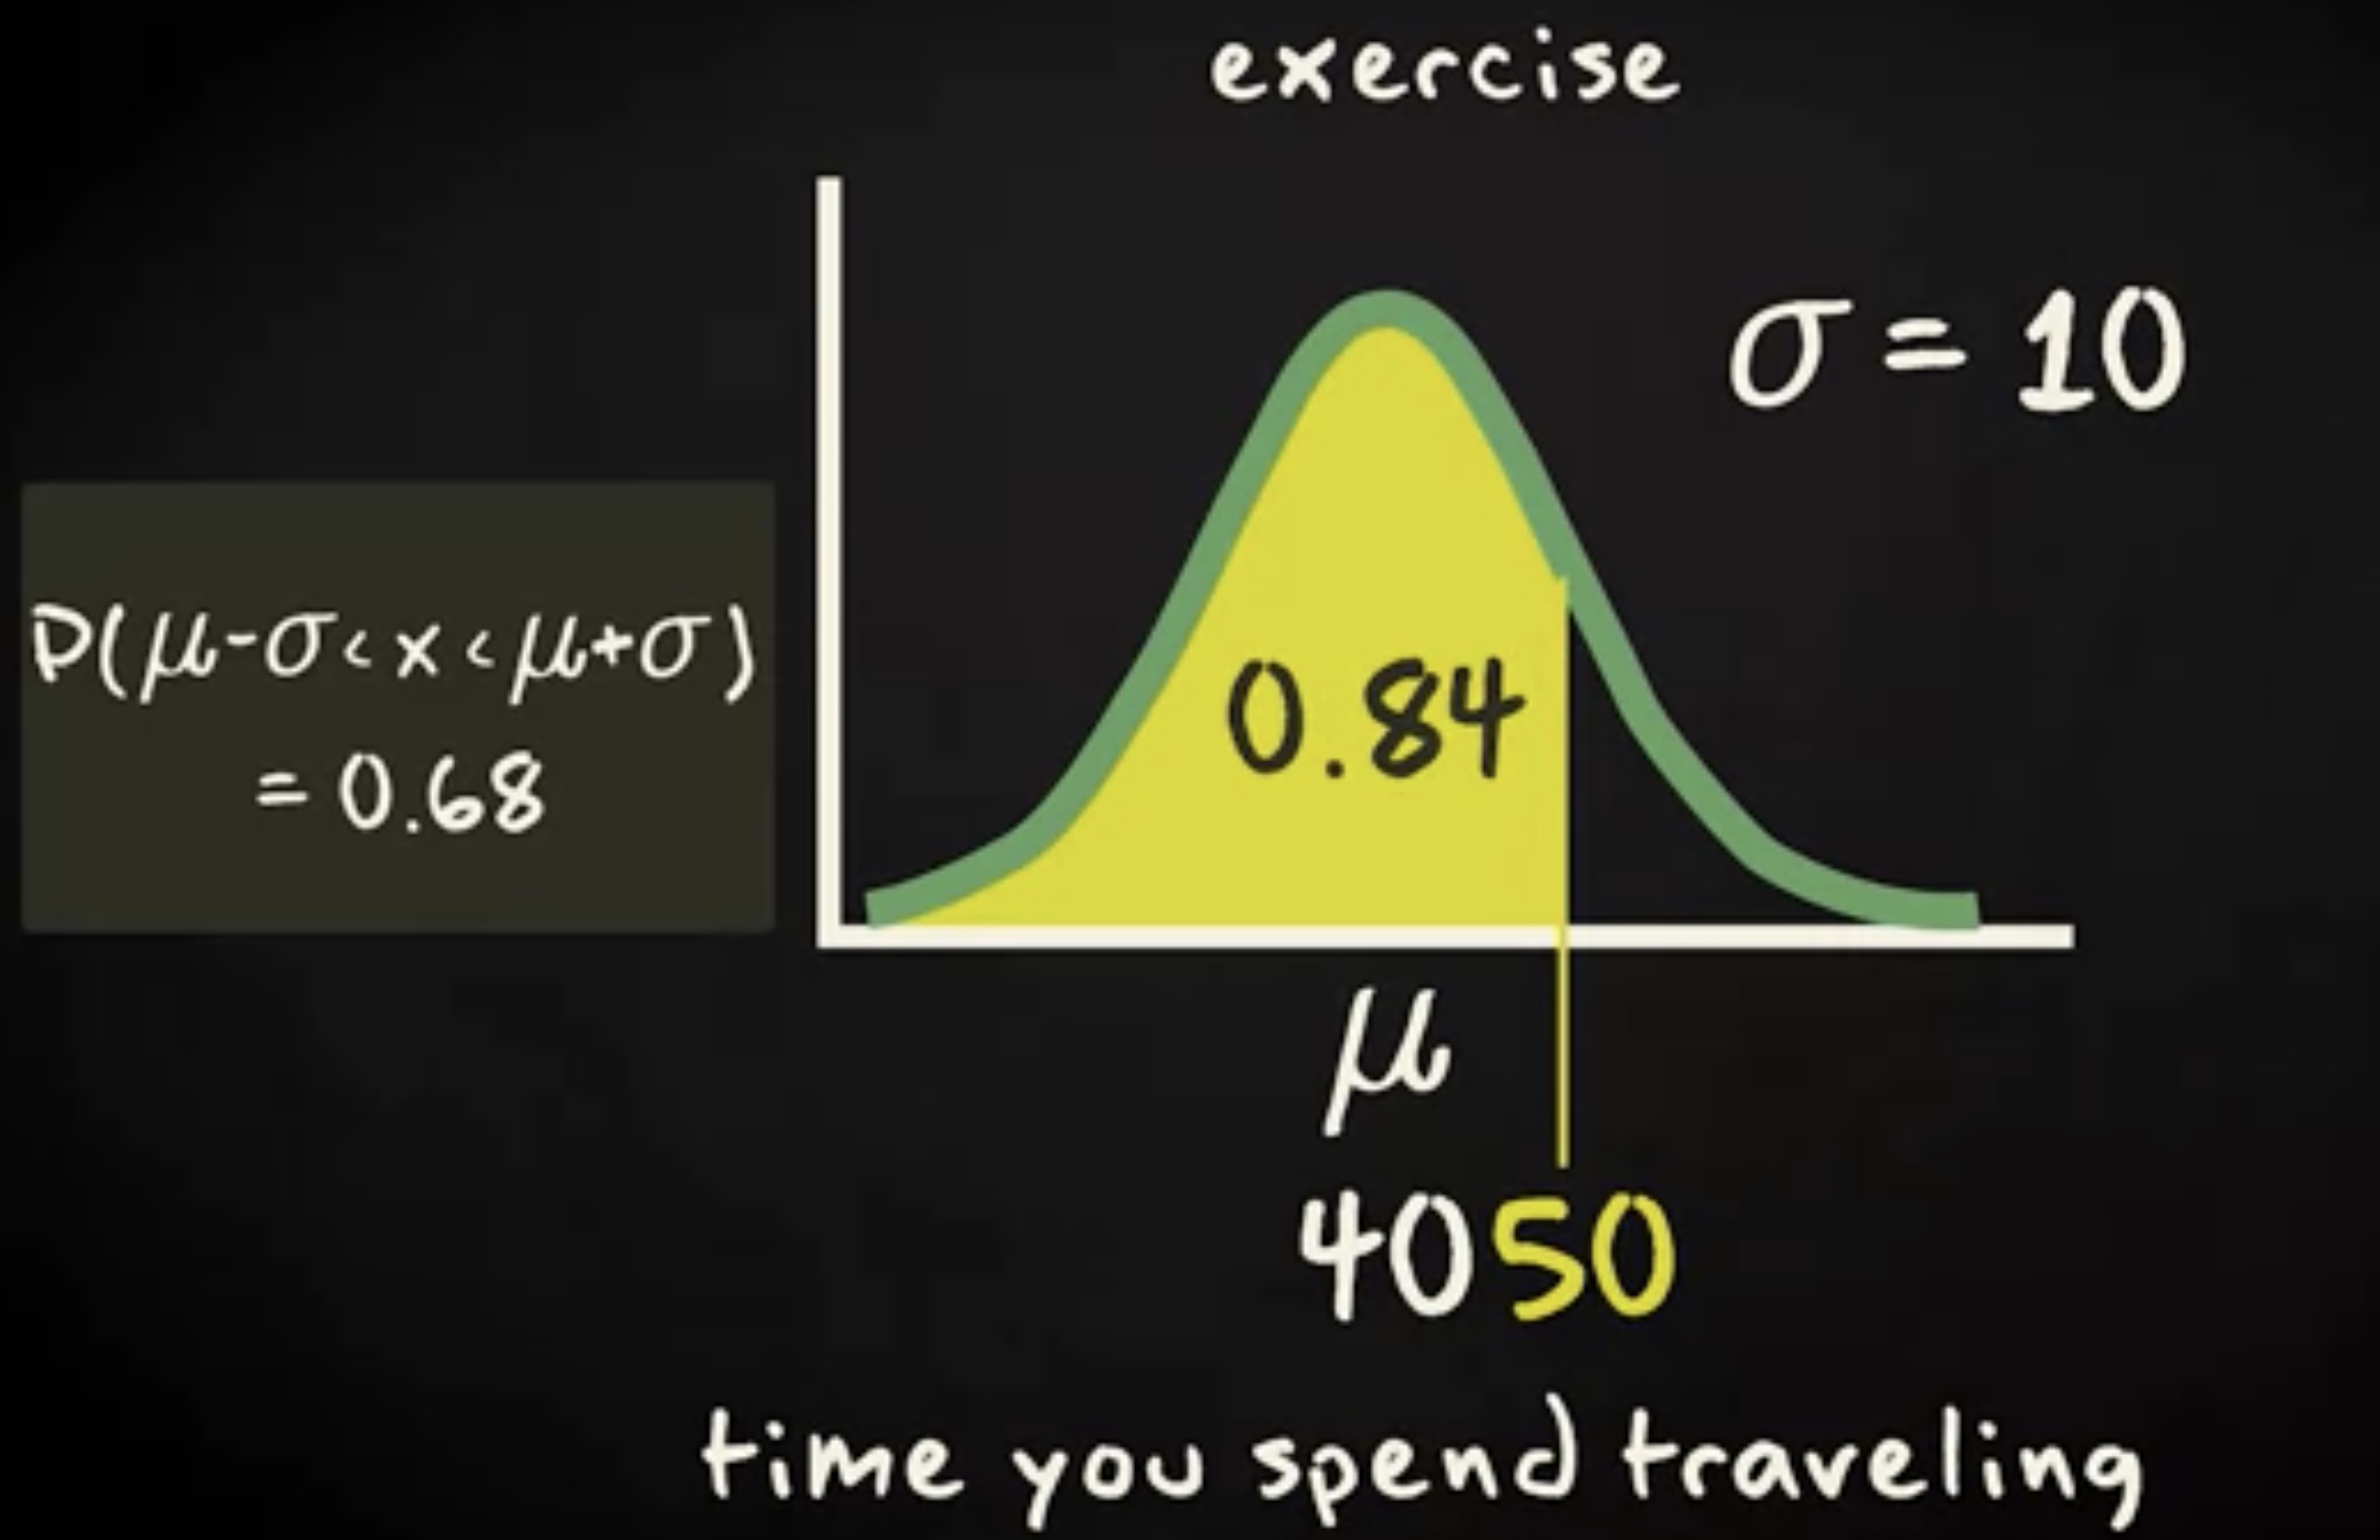 exercise
σ = 10
P(μ-σ < x < μ+σ)
= 0.68
0.84
μ
40 50
time you spend traveling